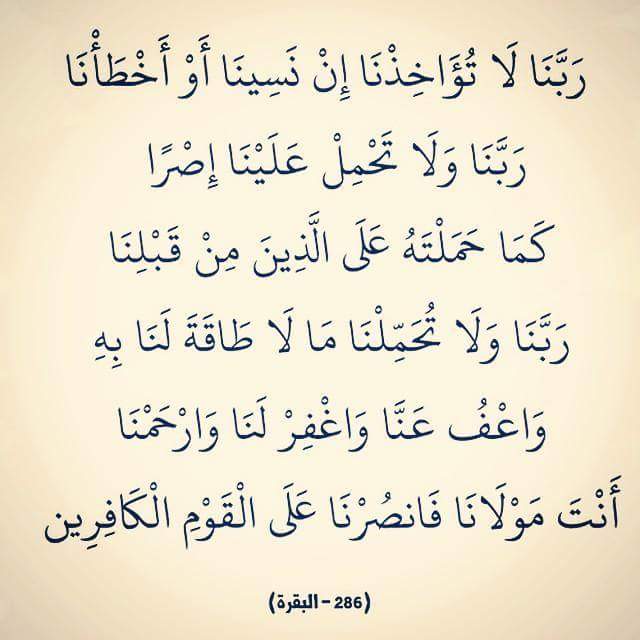 رَبَّنَا لَا تُؤَاخِذْنَا إِنْ نَسِينَا أَوْ أَخْطَأْنَا
رَبَّنَا وَلَا تَحْمِلْ عَلَيْنَا إِصْرًا
كَمَا حَمَلْتَهُ عَلَى الَّذِينَ مِنْ قَبْلِنَا
رَبَّنَا وَلَا تُحَمِّلْنَا مَا لَا طَاقَةَ لَنَا بِهِ
وَاعْفُ عَنَّا وَاغْفِرْ لَنَا وَارْحَمْنَا
أَنْتَ مَوْلَانَا فَانصُرْنَا عَلَى الْقَوْمِ الْكَافِرِين
(286 - البقرة)